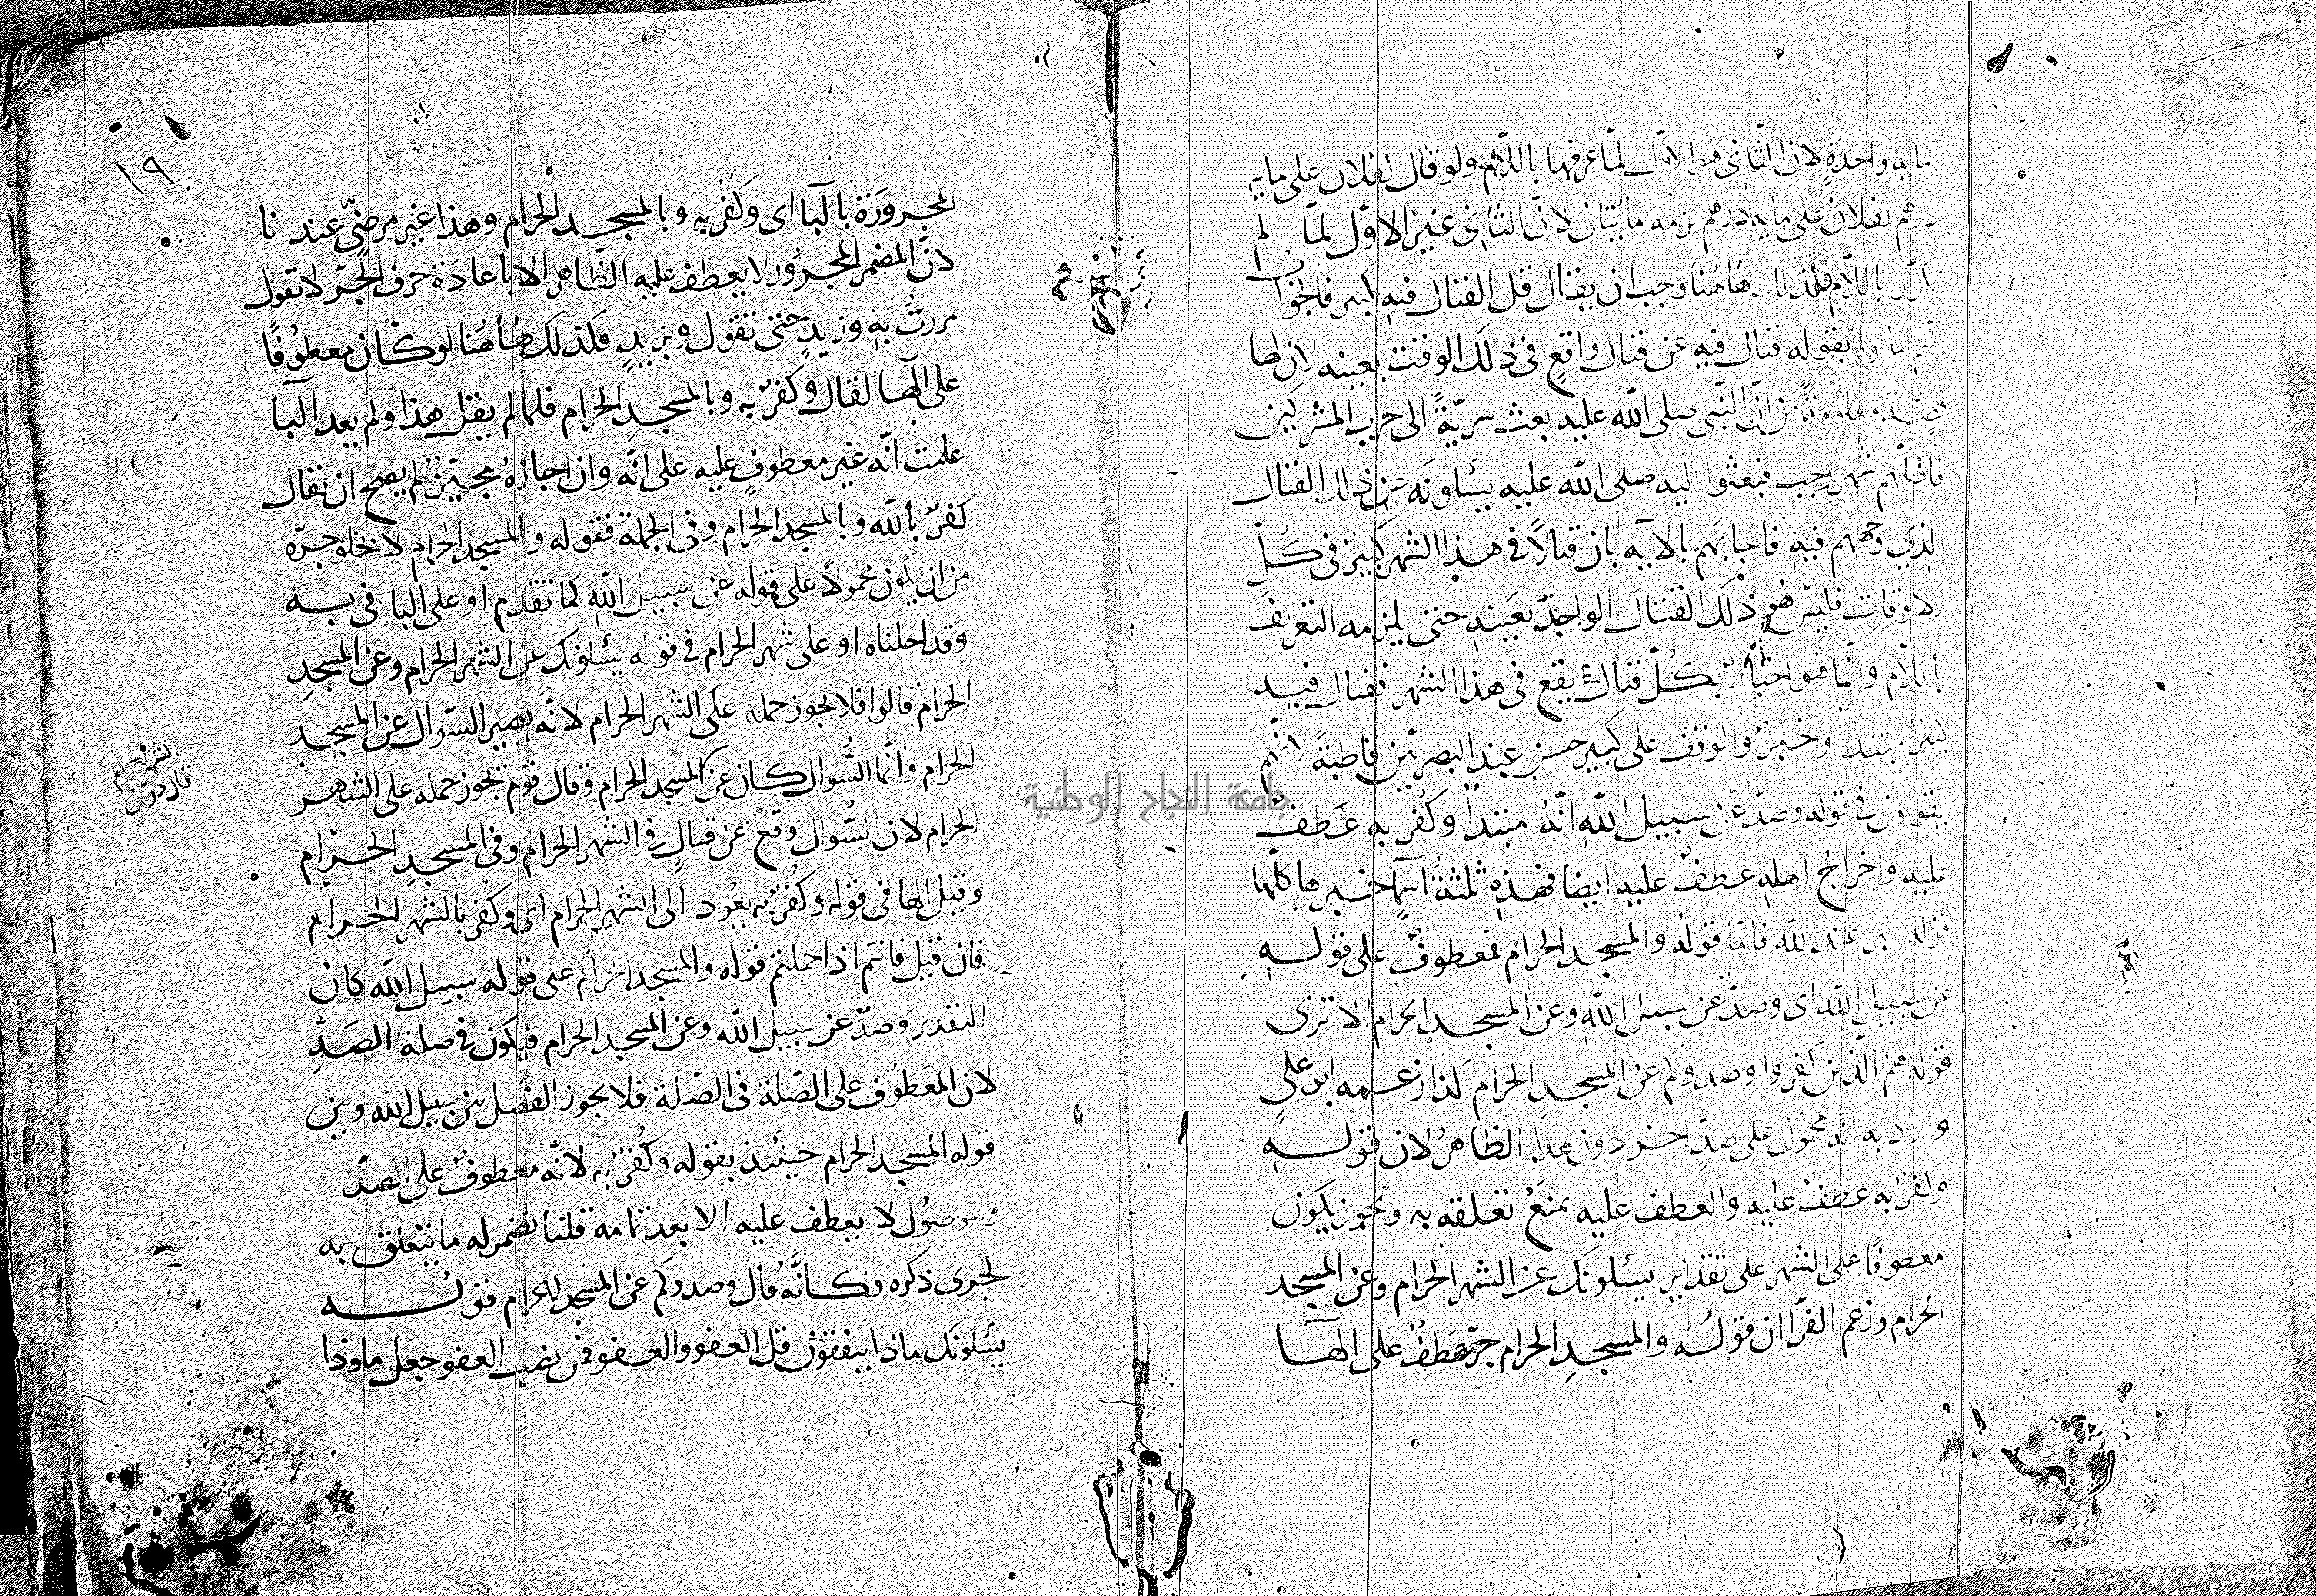 مايه واحدةٍ لان الثانى هوا لاوّل لمّا عرفها باللّام ولو قال لفلان على مايه
درهم لفلان على مايه درهم لزمه مأيتان لانّ الثانى غير الاوّل لمّا لم
تكرّر باللام فلذلك هاهُنا وجب ان يقال قل القتال فيه كبير فاجوا
بقوله قتال فيه عن قتال واقعٍ فى ذلك الوقت بعينه لان لها
قصّة معلومةً من انّ النّبى صلى الله عليه بعث سريّةً الى حرب المشركين
شهر رجب فبعثوا اليه صلى الله عليه يسئلونَه عن ذلك القتال
الذى وجههم فيهِ فاجابَهم بالايه بان قتالاً فى هذا الشهر كبيرٌ فى كُلّ
الاوقاتِ فليسَ هُو ذلكَ القتالَ الواحدَ بعَينهِ حتى يلزمه التعريف
باللّام وانّما هو اخبارٌ بكُلّ قتالٍ يقع فى هذا الشهر فقتال فيه
كبير مبتدا وخبرٌ والوقف على كبير حسن عند البصريّين قاطبةً لانّهم
يقولون فى قوله وصدّ عن سبيل اللّهِ انّهُ مبتدأ وكُفر به عَطفٌ
عليه واخراجُ اهلهِ عطفٌ عليه ايضا فهذهِ ثلثةُ اسمآ خبرها كلّها
قوله اكبر عند اللّه فامّا قولهُ والمسجد الحرام فمعطوفٌ على قولهِ
عن سبيل اللّه اى وصدّ عن سبيل اللّهِ وعن المسجد الحرام الا ترى
قوله هم الذين كفروا وصدوكم عنِ المسجدِ الحرام كذا زعمه ابو علىٍ
واراد به انه محمول على صدّ اخر دون هذا الظاهر لان قولهِ
وكفرٌ به عطفٌ عليه والعطف عليه يمنَعُ تعلقه به ويجوز يكون
معطوفًا على الشهر على تقدير يسئلونكَ عن الشهر الحرام وعن المسجد
الحرام وزعم الفرّا ان قولَهُ والمسجدِ الحرام جرّ عَطفٌ على الهآ
١٩
المجرورَة بالبآ اى وكُفر به وبالمسجد الحرام وهذا غير مرضىّ عندنا
لانّ المضمر المجرُور لا يعطف عليه الظّاهر الا باعادَة حرف الجرّ لا تقول
مررتُ بهِ وزيدٍ حتى تقول وبزيدٍ فكذلك هاهُنا لو كان معطوُفًا
على الهآ لقال وكفرٌ به وبالمسجدِ الحرام فلمالم يقل هذا ولم يعد البآ
علمت انّه غير معطوفٍ عليه على انّه وان اجازهُ مجيزٌ لم يصح ان يقال
كفرٌ بالله وبالمسجد الحرام وفى الجملة فقوله والمسجد الحرام لا يخلو جرّه
من ان يكون محمولاً على قوله عن سبيل اللّهِ كما تقدم او على البا فى به
وقد احلناه او على شهر الحرام فى قوله يسئلونك عن الشهر الحرام وعن المسجدِ
الحرام قالوا فلا يجوز حمله على الشهر الحرام لانّه يصير السّوال عن المسجد
الحرام وانّما السُّوال كان عن المسجد الحرام وقال قوم يجوز حمله على الشهر
الشهر الحرام
الحرام لان السُّوال وقع عن قتالٍ فى الشهر الحرام وفى المسجدِ الحرَام
وقيل الها فى قوله وكُفرٌ به يعُود الى الشهر الحرام اى وكُفر بالشهر الحرام
فان قيل فانتم اذا حملتم قوله والمسجد الحرام على قوله سبيل اللّه كان
التقدير وصدّ عن سبيل اللّه وعن المسجد الحرام فيكون فى صلة الصَدِّ
لان المعَطوُف على الصّلة فى الصّلة فلا يجوز الفَصل بين سبيل الله وبين
قوله المسجد الحرام حينئذ بقوله وكُفرٌ به لانّه معطوفٌ على الصدّ
والموصُول لا يعطف عليه الا بعد تمامه قلنا نضمر له ما يتعلق به
لجرى ذكره فكانّهُ قال وصدوكم عن المسجد الحرام قوله
يسئلونَك ماذا ينفقونَ قل العفو والعفو فمن نصب العفو جعل ماوذا
جامعة النجاح الوطنية